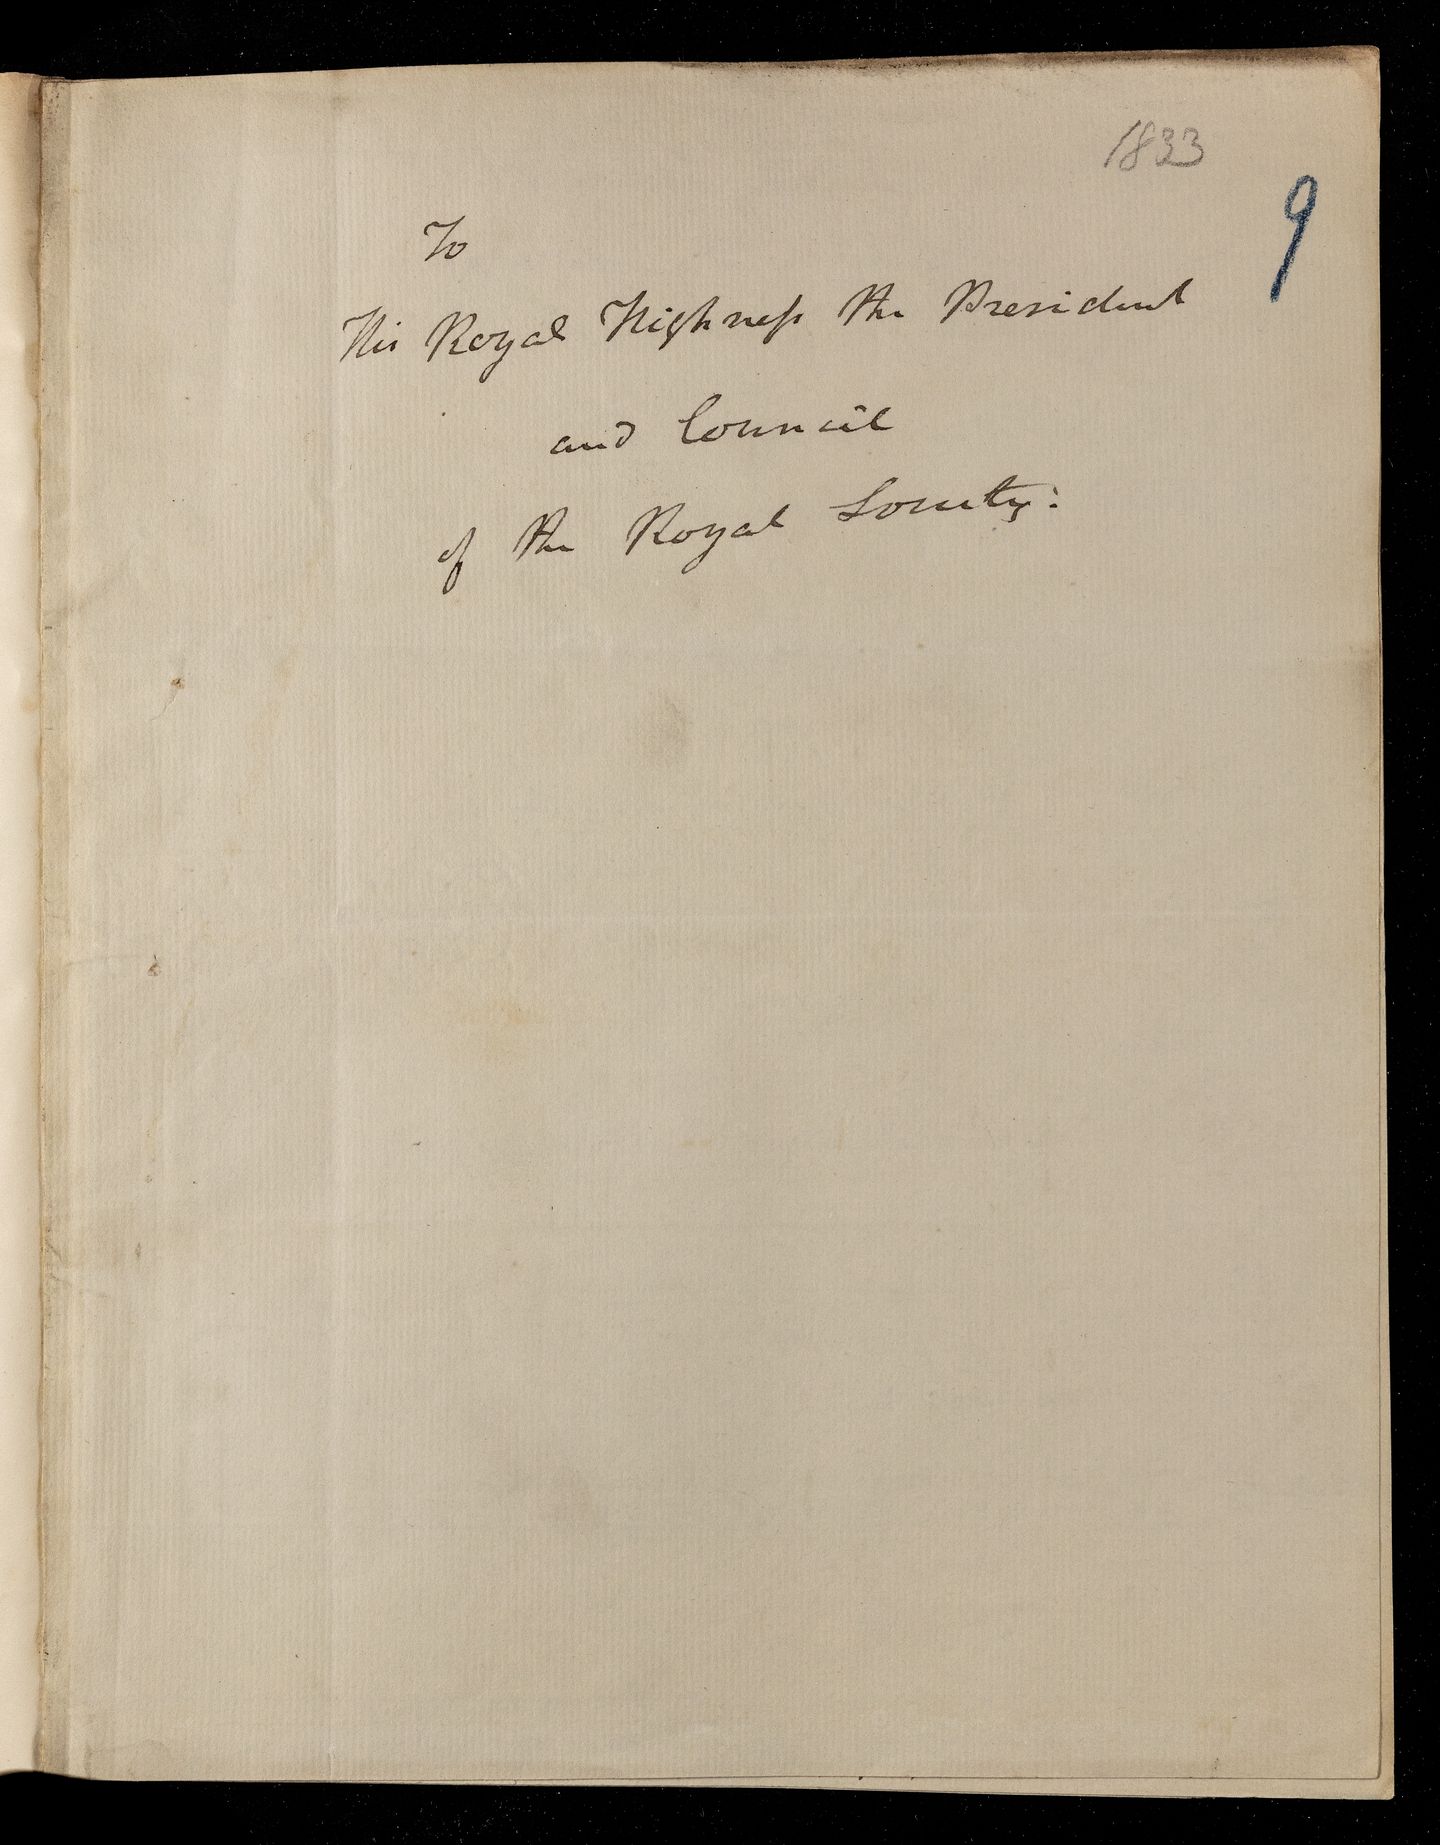 1833
9
To
His Royal Highness the President
and Council
of the Royal Society: